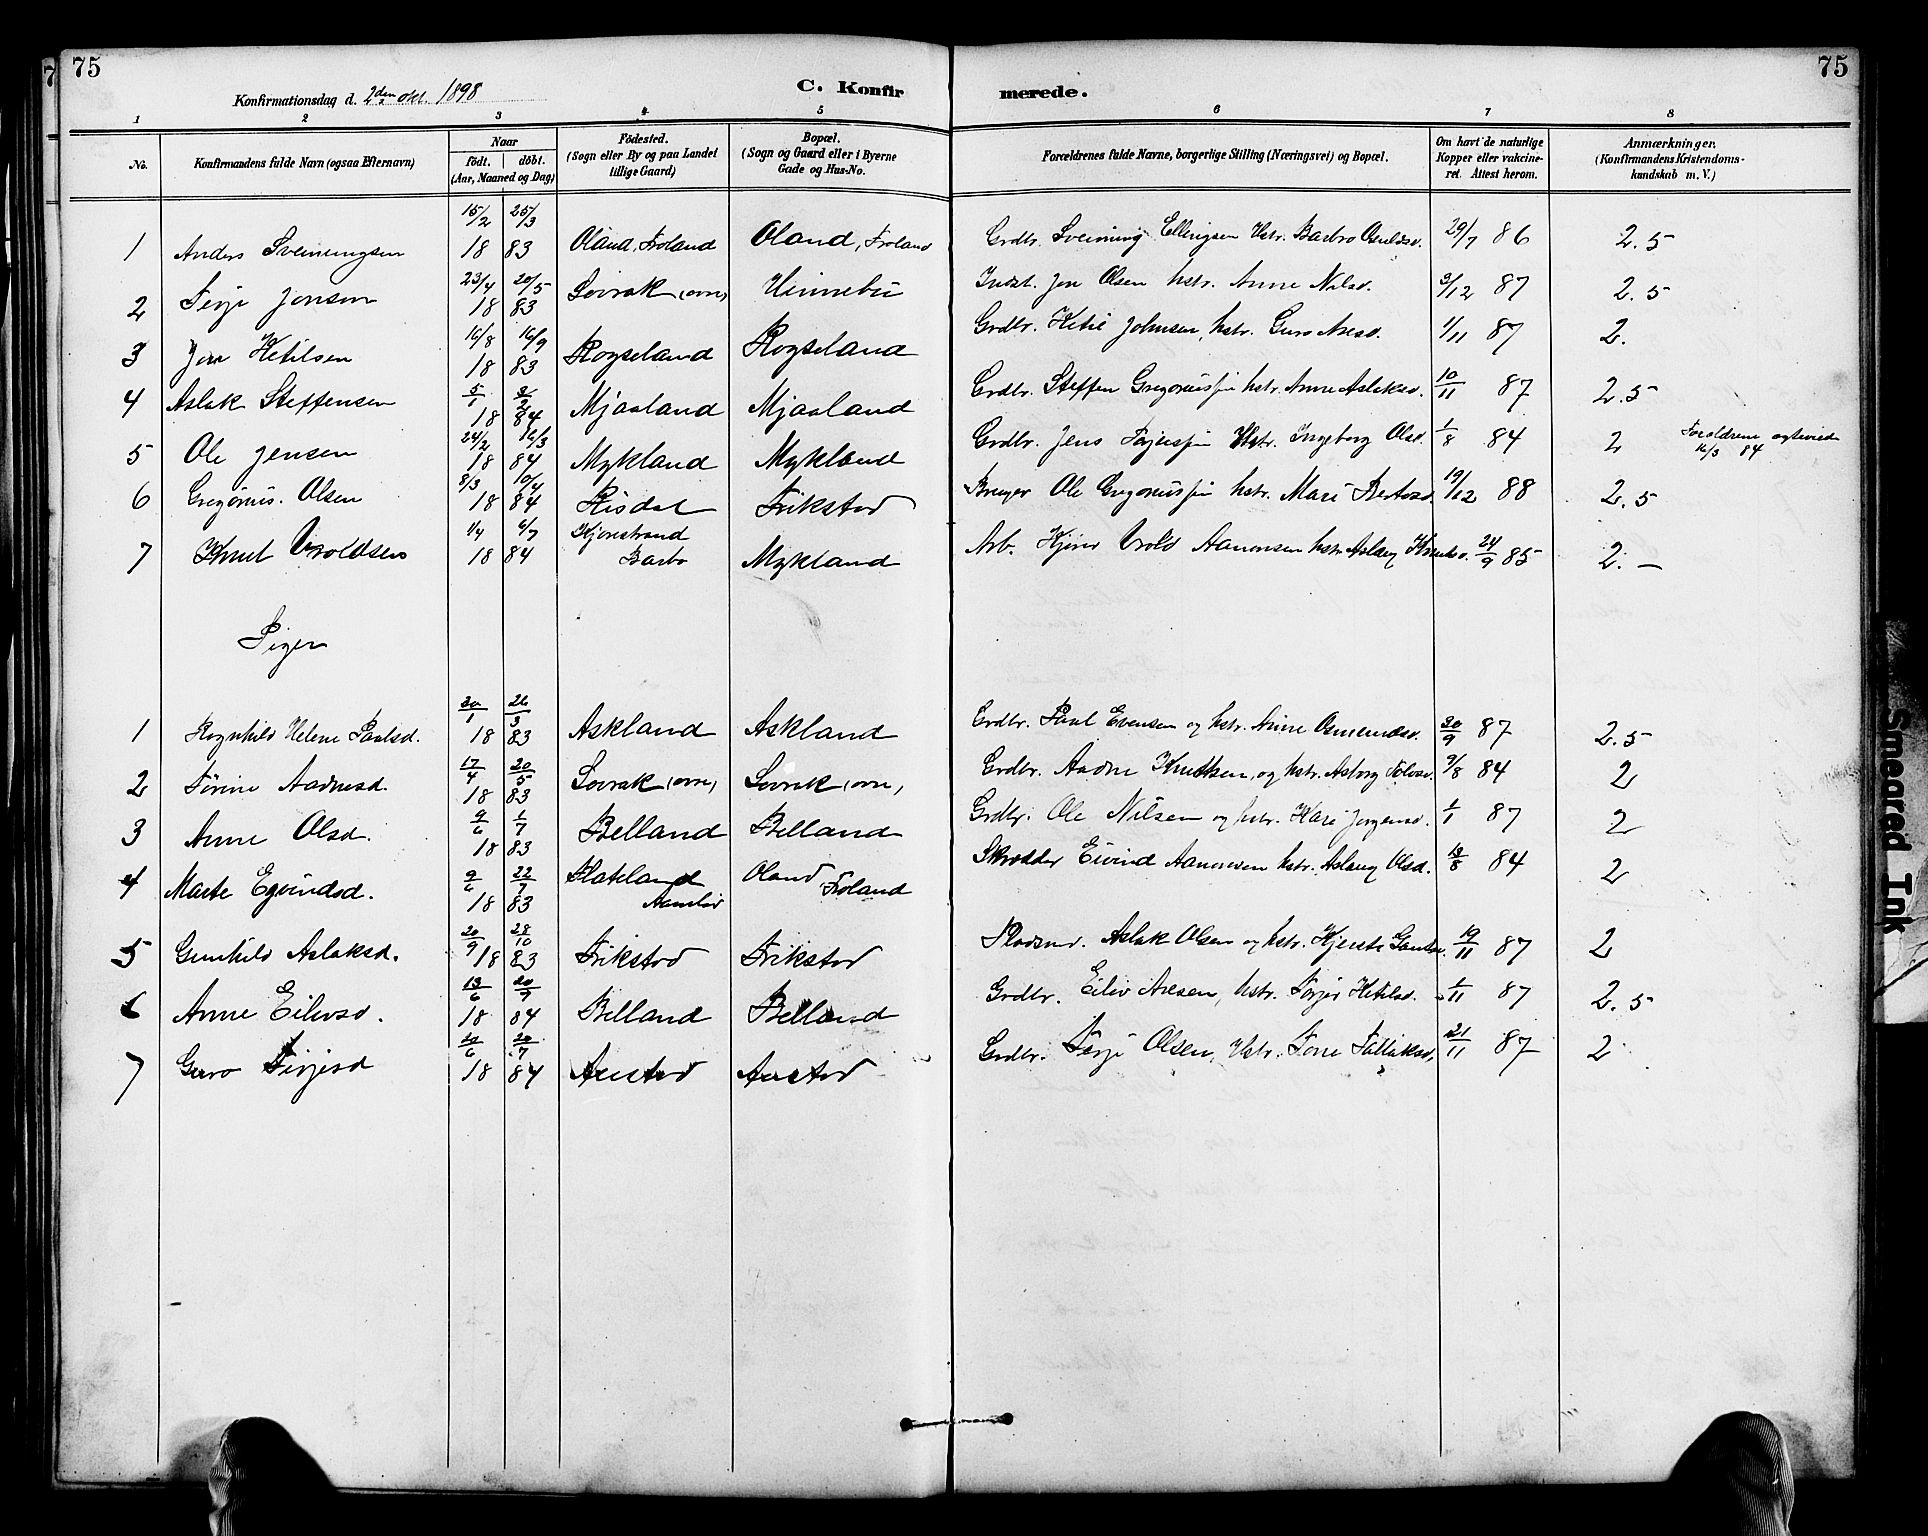 75
75
7
Konfirmationsdag d. 2den okt. 1898
C. Konfir
merede.
1 2 3 4 5 6 7 8
No.
Konfirmandens fulde Navn (ogsaa Efternavn)
Naar
födt. döbt.
(Aar, Maaned og Dag)
Födested.
(Sogn eller By og paa Landet
tillige Gaard)
Bopæl.
(Sogn og Gaard eller i Byerne
Gade og Hus-No.
Forældrenes fulde Navne, borgerlige Stilling (Næringsvei) og Bopæl.
Om havt de naturlige
Kopper eller vakcine-
ret. Attest herom.
Anmærkninger.
(Konfirmandens Kristendoms-
kundskab m. V.)
1 Anders Sveinungsen 15/2 25/3 18 83 Oland, Froland Oland, Froland Grdbr. Sveinung Ellingsen Hstr. Barbro 29/7 86 2.5
2 Terje Jensen 23/4 20/5 18 83 (øvre) Hinnebu Indst. Jen Olsen hstr. Anne Nilsd. 3/12 87 2.5
3 Jon Ketilsen 16/8 16/9 18 83 Rogseland Rogseland Grdbr. Ketil Johnsen, hstr. Guro Aresd. 1/11 87 2.
4 Aslak Steffensen 5/1 3/2 18 84 Mjaaland Mjaaland Grdbr. Steffen hstr. Anne Aslaksd. 10/11 87 2.5
5 Ole Jensen 24/2 16/3 18 84 Mykland Mykland Grdbr. Jens Hstr. Ingeborg Olsd. 1/8 84 2 Forældrene
16/3 84
6 Gregorius. Olsen 8/3 10/4 18 84 Risdal Frikstad Bruger Ole hstr. Mari 19/12 88 2.5
7 Knut Vroldsen 1/4 6/7 18 84 Barbo Mykland Arb. Vrold Aanonsen hstr. Aslaug Knutsd. 24/9 85 2. —
Piger
1 Rognhild Helene Paulsd. 30/1 26/3 18 83 Askland Askland Grdbr. Paul Evensen og hstr. Anne 30/9 87 2.5
2 Törine Aadnesd. 17/4 20/5 18 83 (øvre) (øvre) Grdbr. Aadne Knutsen, og hstr. Asborg 84 2
3 Anne Olsd. 9/6 1/7 18 83 Belland Belland Grdbr. Ole Nilsen og hstr. Kari Jörgensd. 1/1 87 2
4 Marte Egvindsd. 9/6 22/7 18 83 Flateland Aamlid Oland, Froland Skrædder Eivind Aanonsen hstr. Aslaug Olsd. 18/8 84 2
5 Gunhild Aslaksd. 20/9 28/10 18 83 Frikstad Frikstad Pladsmd. Aslak Olsen og hstr. Kjersti 19/11 87 2
6 Anne Eilevsd. 13/6 20/7 18 84 Belland Belland Grdbr. Eiliv Aresen, hstr. Ketilsd. 1/11 87 2.5
7 Guro Terjesd 20/6 20/7 18 84 Austad Austad Grdbr. Terje Olsen, Hstr. Tone Tallaksd, 21/11 87 2
Smeared Ink